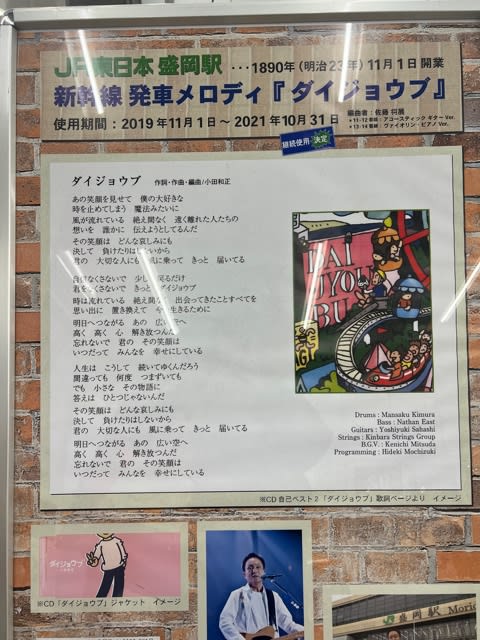 JR東日本 盛岡駅 ・・・1890年（明治23年）11月1日開業
新幹線 発車メロディ『ダイジョウブ』
編曲者：佐藤 将展
使用期間：2019年11月1日～2021年10月31日
＊11・12番線：アコースティック ギター Ver.
＊13・14番線：ヴァイオリン・ピアノ Ver.
継続使用 決定
ダイジョウブ 作詞・作曲・編曲/小田和正
あの笑顔を見せて 僕の大好きな
時を止めてしまう 魔法みたいに
風が流れている 絶え間なく 遠く離れた人たちの
想いを 誰かに 伝えようとしてるんだ
その笑顔は どんな哀しみにも
決して 負けたりはしないから
君の 大切な人にも 風に乗って きっと 届いてる
自信なくさないで 少し戻るだけ
君をなくさないで きっと ダイジョウブ
時は流れている 絶え間なく 出会ってきたことすべてを
思い出に 置き換えて 今を生きるために
明日へつながる あの 広い空へ
高く 高く 心 解き放つんだ
忘れないで 君の その笑顔は
いつだって みんなを 幸せにしている
人生は こうして 続いてゆくんだろう
間違っても 何度 つまずいても
でも 小さな その物語に
答えは ひとつじゃないんだ
その笑顔は どんな哀しみにも
決して 負けたりはしないから
君の 大切な人にも 風に乗って きっと 届いてる
明日へつながる あの 広い空へ
高く 高く 心 解き放つんだ
忘れないで 君の その笑顔は
いつだって みんなを 幸せにしている
DAI
JYOU
BU
Drums : Mansaku Kimura
Bass : Nathan East
Guitars : Yoshiyuki Sahashi
Strings : Kinbara Strings Group
B.G.V. : Kenichi Mitsuda
Programming : Hideki Mochizuki
※CD 自己ベスト2「ダイジョウブ」歌詞ページより イメージ
ダイジョウブ
※CD「ダイジョウブ」ジャケット イメージ
盛岡駅 Morio